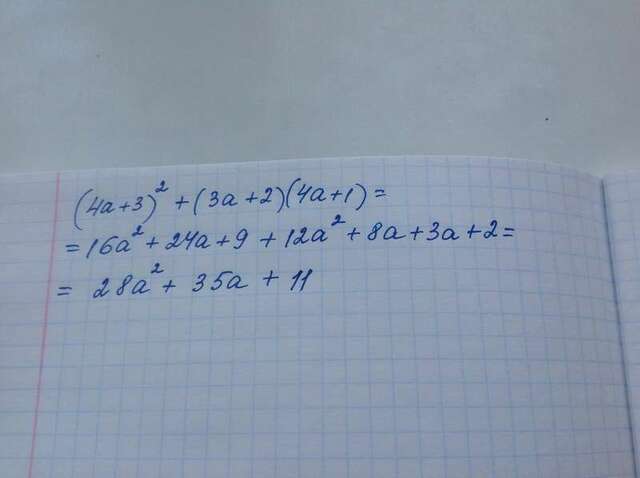 (4a+3)² + (3a+2)(4a+1) =
= 16a² + 24a + 9 + 12a² + 8a + 3a + 2 =
= 28a² + 35a + 11